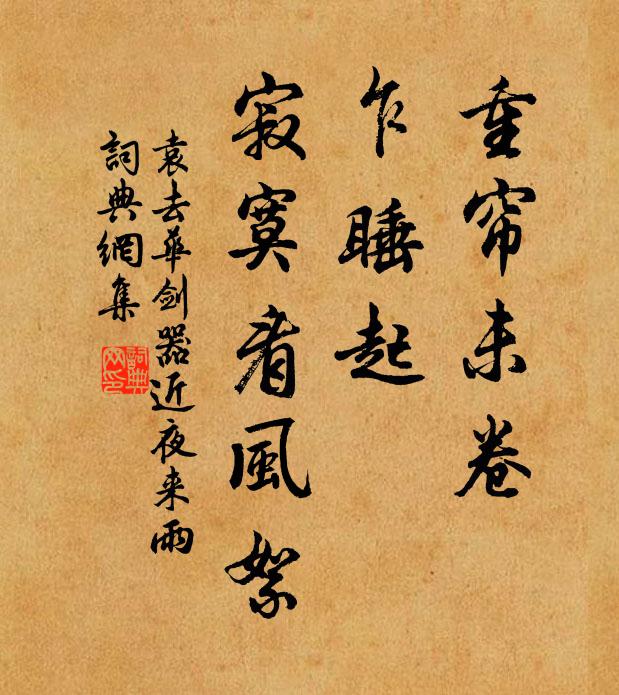 重帘未卷
乍睡起
寂寞看風絮
袁去華剑器近夜来雨
詞典網集
詞典
网印